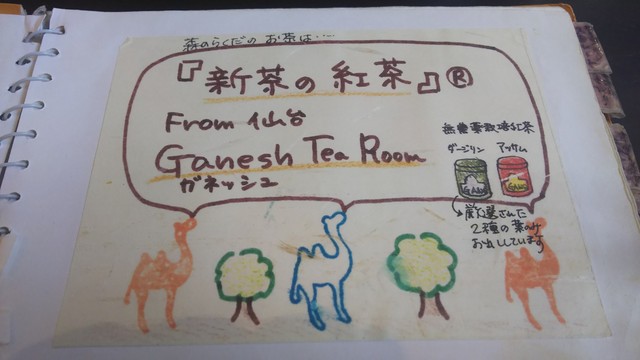 森のらくだの お茶は‥‥
『新茶の紅茶』®
From 仙台
Ganesh Tea Room
ガネッシュ
無農薬栽培紅茶
ダージリン アッサム
厳選された
2種の葉のみ
お出ししています